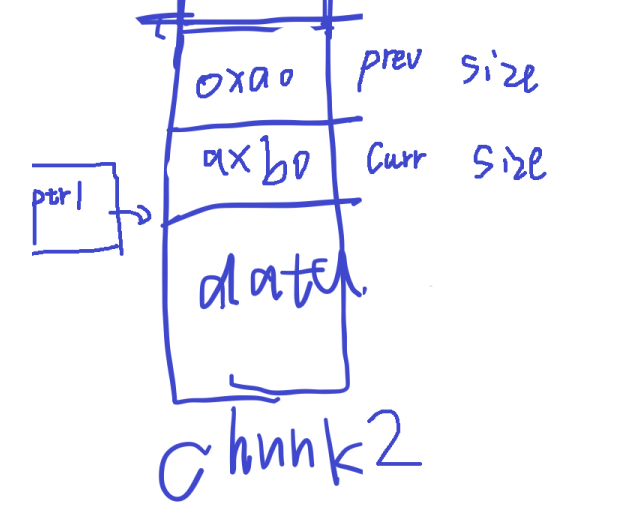 0xa0 prev size
0xb0 Curr size
ptr1
data
Chunk2